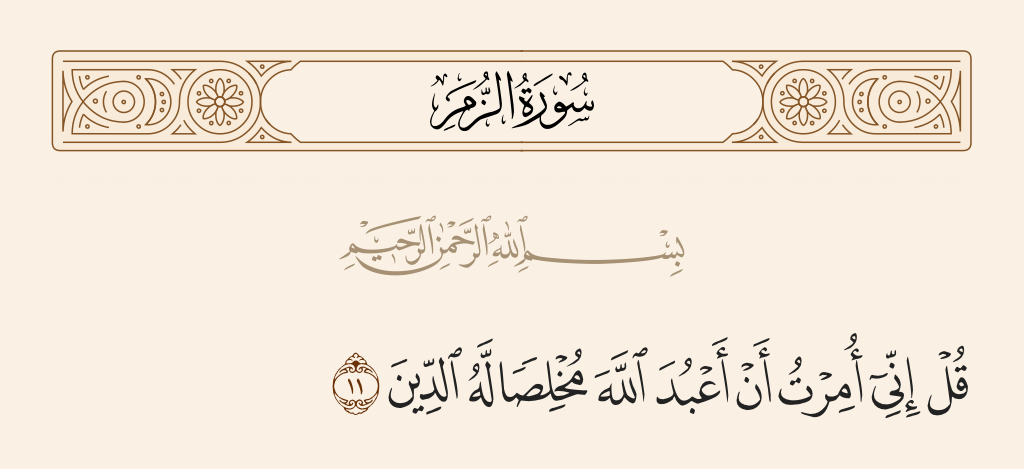 سُورَةُ الزُّمَرِ
بِسْمِ ٱللَّهِ ٱلرَّحْمَٰنِ ٱلرَّحِيمِ
قُلْ إِنِّىٓ أُمِرْتُ أَنْ أَعْبُدَ ٱللَّهَ مُخْلِصًا لَّهُ ٱلدِّينَ ١١